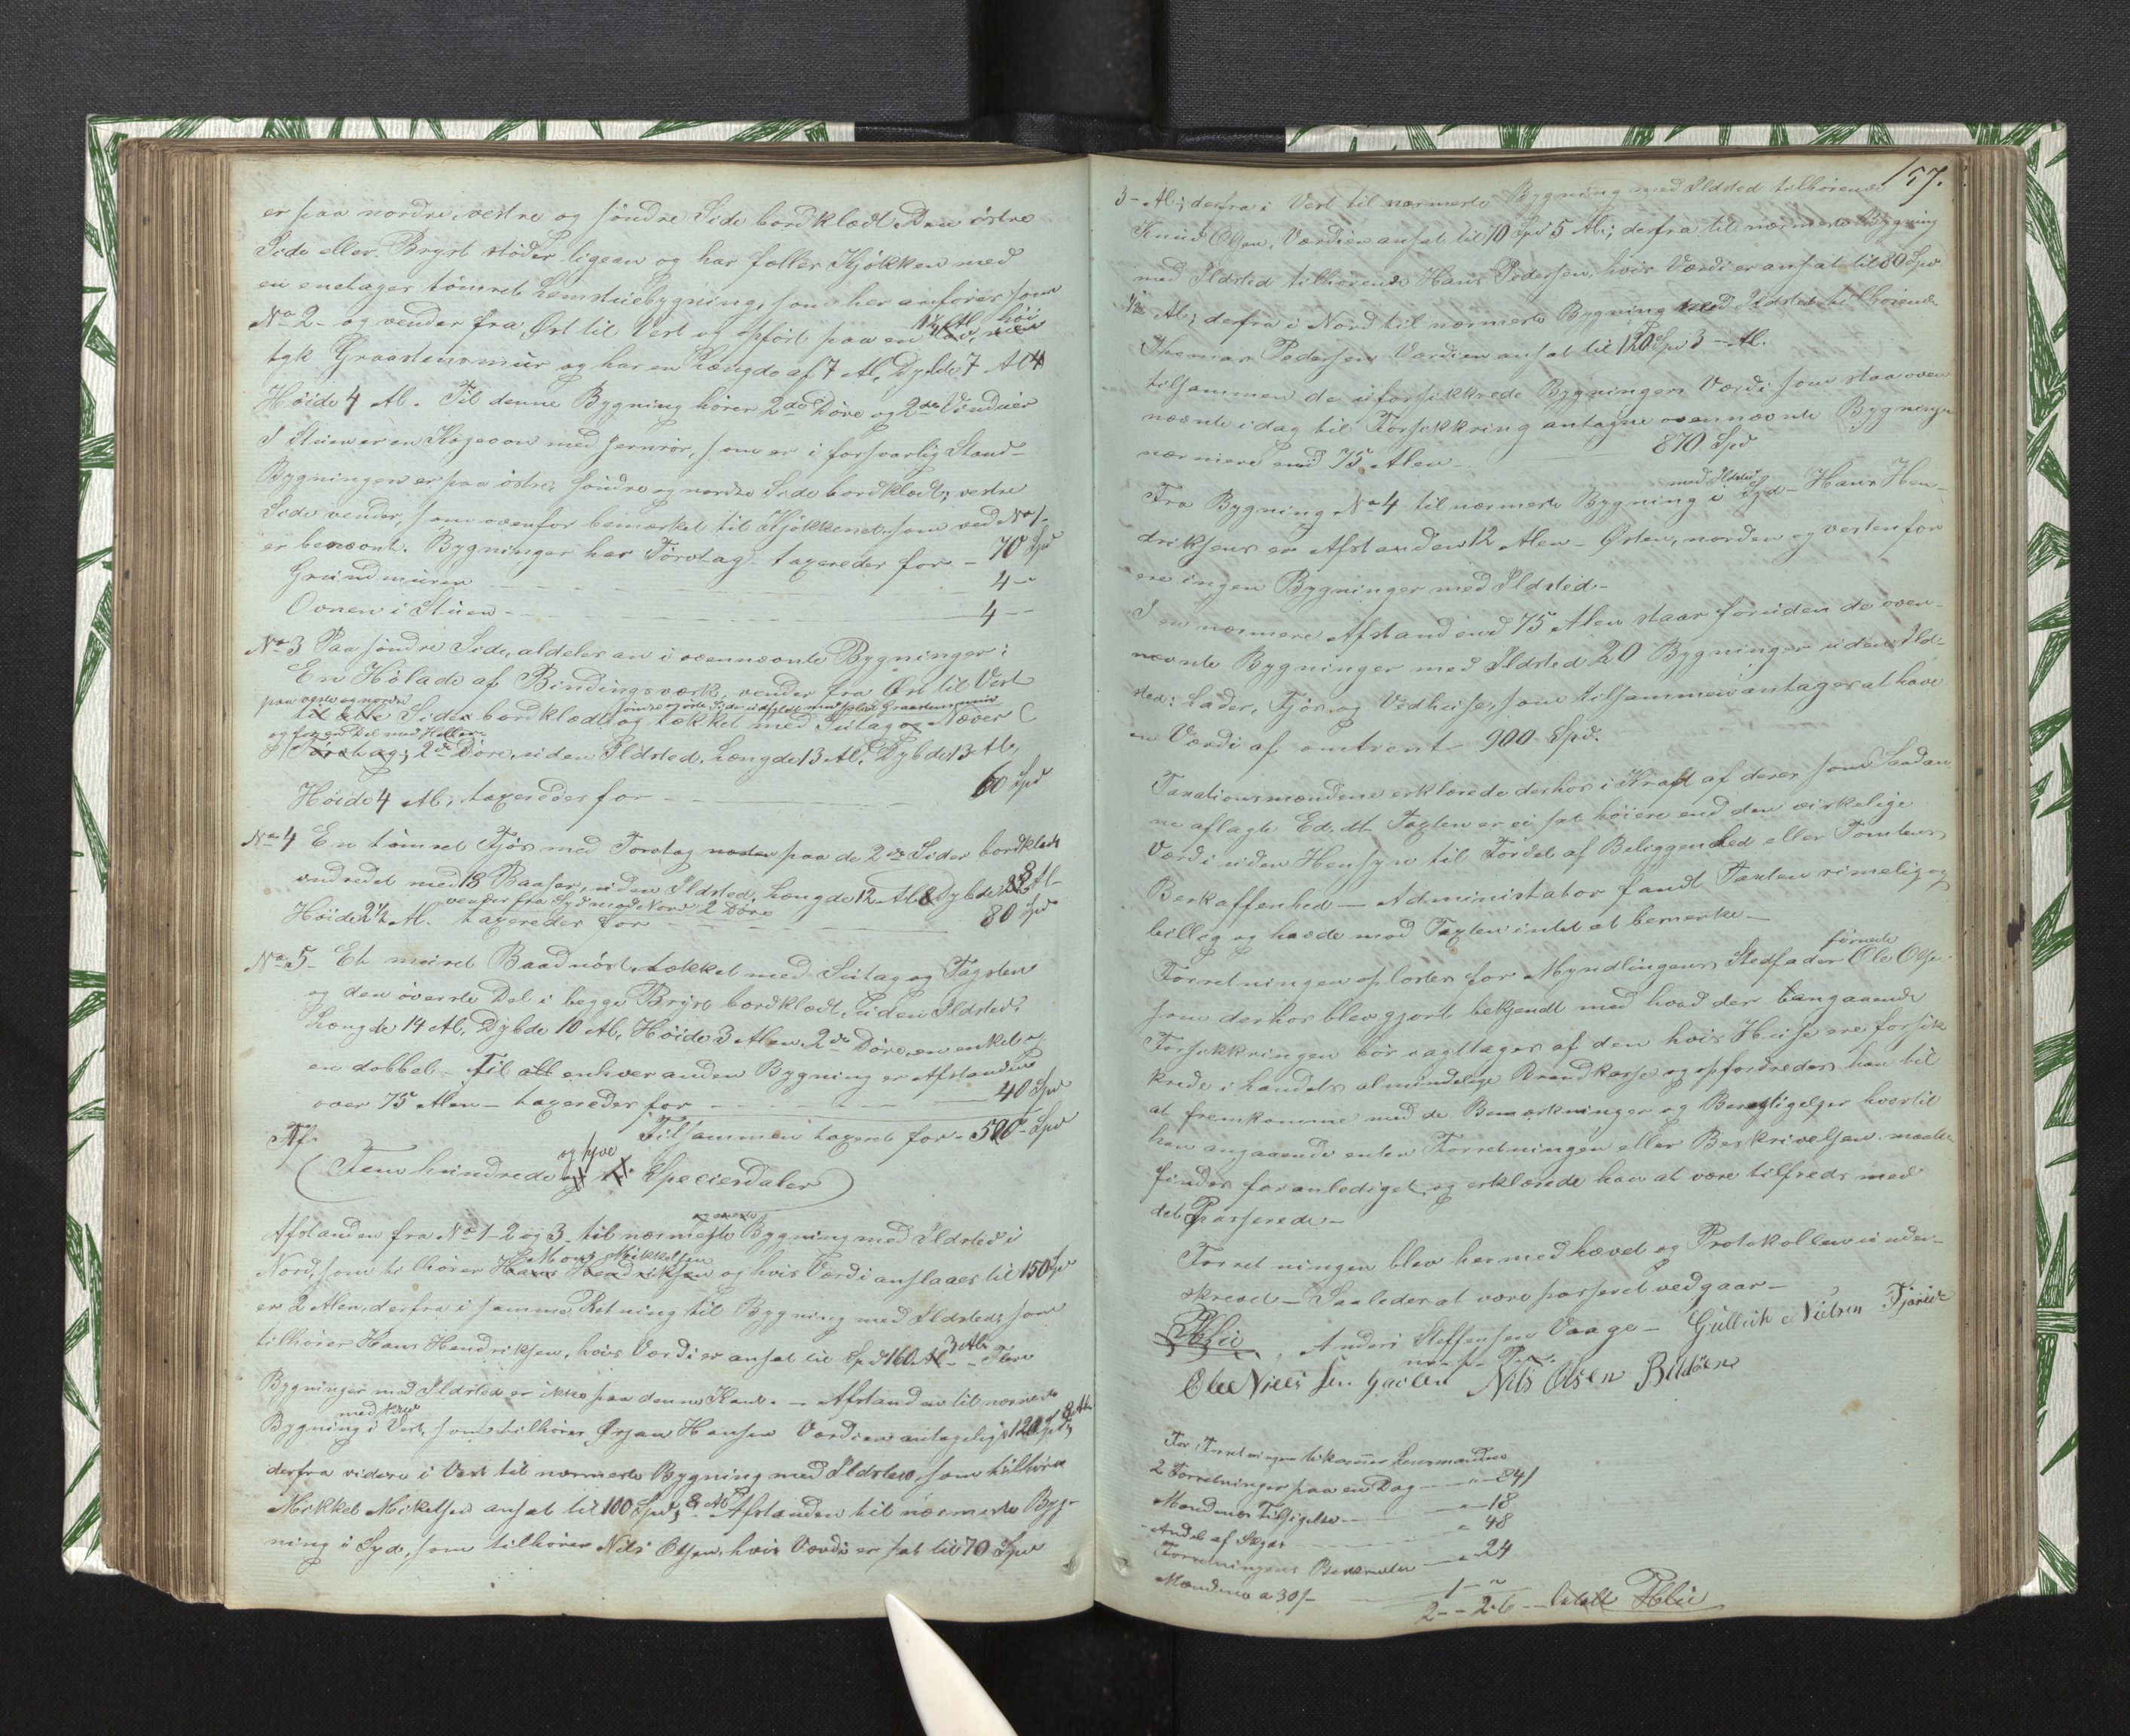 er paa nordre, vestre og søndre Side bordklædt. Den østre
Side eller Bryst støder ligeen og har fælles Kjøkken med
en enetages tømret Lemstuebygning, som her anføres som
No 2 - og vender fra Øst til Vest og opført paa en 1 1/4 Al. høi
tyk Graasteensmuur og har en Længde af 7 Al., Dybde 7 Al
Høide 4 Al. Til denne Bygning hører 2de Døre og 2de Vinduer
I Stuen er en Kogeovn med Jernrør, som er i forsvarlig Stand-
Bygningen er paa østre, søndre og nordre Side bordklædt; vestre
Side vender, som ovenfor bemærket til Kjøkkenet, som ved No 1-
er benævnt. Bygninger har Torvtag- taxeredes for - 70 Spd
Grundmuren - - - 4 -"
Ovnen i Stuen - - - 4 -
No 3 Paa søndre Side, aldeles an i ovennævnte Bygninger:
En Hølade af Bindingsværk, vender fra Øst til Vest
paa vestre og nordre søndre og østre Side udfyldt med Graasteensmuur
til alle Sider bordklædt og tækket med Sutag og Næver
og for en Deel med Heller
Torvtag; 2de Døre, uden Ildsted, Længde 13 Al., Dybde 13 Al.,
Høide 4 Al., taxeredes for - - 60 Spd
No 4 En tømret Fjøs med Torvtag næsten paa de 2de Sider bordklædt
indredet med 13 Baaser, uden Ildsted, Længde 12 Al. Dybde 8 Al-
vender fra Syd mod Nord 2 Døre
Høide 2 1/2 Al. taxeredes for - - - 80 Spd
No 5 - Et muret Baadnøst, tækket med Sutag og Tagsten
og den øverste Del i begge Bryst bordklædt, uden Ildsted.
Længde 14 Al., Dybde 10 Al., Høide 3 Alen, 2de Døre, en enkelt og
en dobbel - Til all enhver anden Bygning er Afstanden
over 75 Alen - taxeredes for - - 40 Spd
Tilsammen taxeret for - 520 Spd
og tyve
(Fem hundrede Speciesdaler)
Afstanden fra No 1-2 og 3 - til nærmeste Bygning med Ildsted i
Mons Mikkelsen
Nord, som tilhører Hans Hendriksen og hvis Værdi anslaaes til 150 Spd
er 2 Alen, derfra i samme Retning til Bygning med Ildsted, som
tilhører Hans Hendriksen, hvis Værdi er ansat til Spd 160 3 Al. - Flere
Bygninger med Ildsted er ikke paa denne Kant. - Afstanden til nærmeste
Bygning i Vest, som tilhører Ørjan Hansen Værdien antagelig 120 Spd 8 Al.
derfra videre i Vest til nærmeste Bygning med Ildsted, som tilhører
Mikkel Mikelsen ansat til 100 Spd; 8 Al. Afstanden til nærmeste Byg-
ning i Syd, som tilhører Nils Olsen, hvis Værdi er sat til 70 Spd
157.
3 - Al; derfra i Vest til nærmeste Bygning med Ildsted tilhørende
Knud Olsen, Værdien ansat til 70 Spd 5 Al; derfra til nærmeste Bygning
med Ildsted tilhørende Hans Pedersen, hvis Værdi er ansat til 80 Spd
1/2 Al; derfra i Nord til nærmeste Bygning med Ildsted tilhørende
Thomas Pedersen Værdien ansat til 120 Spd 3 - Al.
tilsammen de uforsikkrede Bygningers Værdi som staa oven
nævnte i dag til Forsikkring antagne ovennævnte Bygninger
nærmere end 75 Alen - 870 Spd
med Ildsted
Fra Bygning No 4 til nærmeste Bygning i Syd - Hans Hen-
driksens er Afstanden 12 Alen - Østen, norden og vestenfor
ere ingen Bygninger med Ildsted -
I en nærmere Afstand end 75 Alen staar foruden de oven-
nævnte Bygninger med Ildsted 20 Bygninger uden Ild-
sted: Lader, Fjøs og Vedhuse, som tilsammen antages at have
en Værdi af omtrent 900 Spd.
Taxationsmændene erklærede derhos i Kraft af deres som saadan
ne aflagte Ed, at Taxten er ei sat høiere end den virkelige
Værdi uden Hensyn til Fordel af Beliggenhed eller Tomtens
Beskaffenhed - Administrator fandt Taxten rimelig og
billig og havde mod Taxten intet at bemærke -
Forretningen oplæstes for Myndlingens Stedfader fornævnte Ole Olsen
som derhos blev gjort bekjendt med hvad der angaaende
Forsikkringen bør iagttages af den hvis Huse ere forsik
krede i Landets almindelige Brandkasse og opfordredes han til
at fremkomme med de Bemærkninger og Berigtigelser hvortil
han angaaende enten Forretningen eller Beskrivelsen maatte
findes foranlediget, og erklærede han at være tilfreds med
det Passerede -
Forretningen blev hermed hævet og Protokollen under-
skrevet - Saaledes at være passeret vedgaar -
Anders Steffensen Vaage - Gullich Nielsen Fjærede
m. f. P.
Ole Niels Sen Gaelen Nils Olsen Bildøen
For Forretningen tilkommer Lensmanden
2 Forretninger paa en Dag - - 84
Mændenes Tilsigelse - - 18
Andel af Skyds - - 48
Forretningens Beskrivelse - - 24
Mændene a 30 s - 1 - "
2 - - 26 - betalt